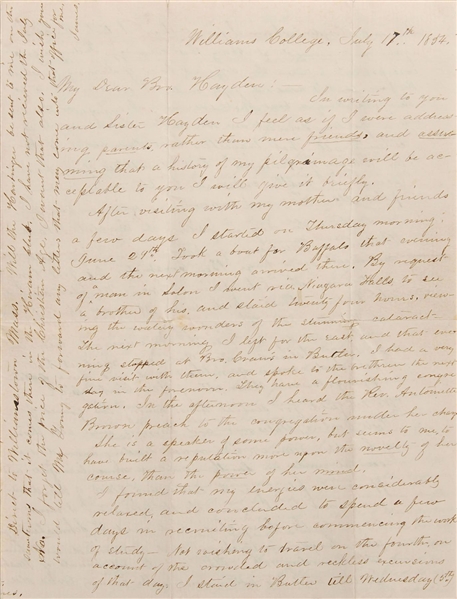 Williams College, July 17th 1854.
My Dear Bro. Hayden:—
In writing to you
and Sister Hayden I feel as if I were address
ing parents rather than mere friends, and
ming that a history of my pilgrimage will be ac-
ceptable to you I will give it briefly.
After visiting with my mother and friends
a few days I started on Thursday morning
June 29th Took a boat for Buffalo that evening
and the next morning arrived there. By request
of a man in Solon I went via Niagara Falls to see
a brother of his, and staid twenty four hours, view-
ing the watery wonders of the stunning cataract
The next morning I left for the east and that eve-
ning stopped at Bro. in Butler. I had a very
fine visit with them, and spoke to the brethren the next
day in the forenoon. They have a flourishing congre
gation. In the afternoon I heard the Rev. Antoinette
Brown preach to the congregation under her charge
She is a speaker of some power, but seems to me to
have built a reputation more upon the novelty of her
course, than the power of her mind.
I found that my energies were considerably
relaxed, and concluded to spend a few
days in recruiting before commencing the work
of study— Not wishing to travel on the fourth, on
account of the crowded and reckless excursions
of that day, I staid in Butler till Wednesday (5th)
Direct to Williamstown Mass.
Will the Harbinger be sent to me on the
that it comes there in the Hiram club. I have not received the July
forget the price of the Christian Age. I want that also. I wish you
would tell Mr. to forward any letters that may come into that office for
James.